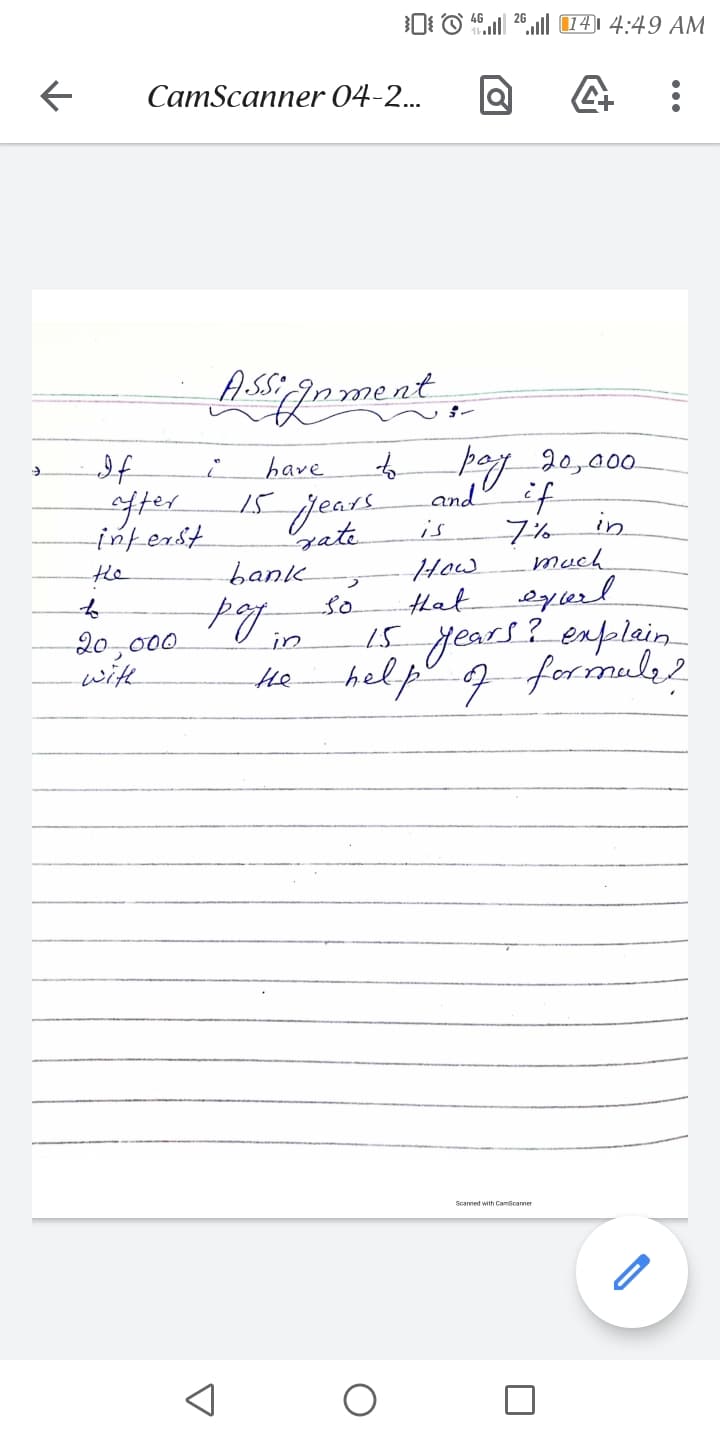 4G 2G 14 4:49 AM
CamScanner 04-2...
Assignment :-
If i have to pay 20,000
after 15 years and if
interst rate is 7% in
the bank, How much
to pay so that equel
20,000 in 15 years? explain
with the help of formule?
Scanned with CamScanner